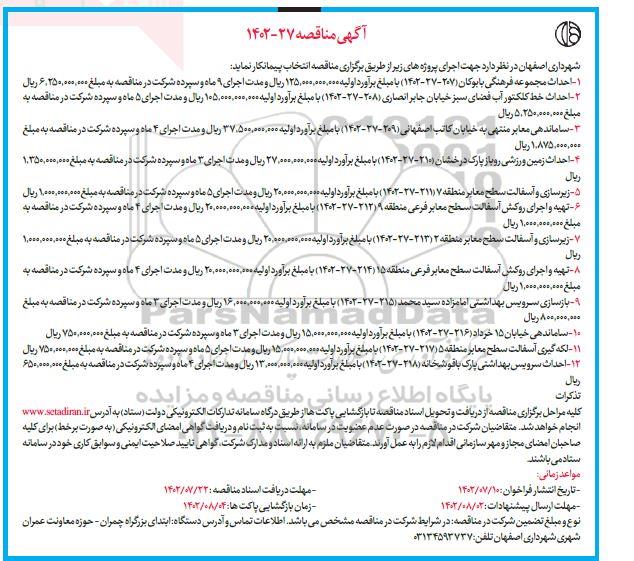 آگهی مناقصه ۲۷-۱۴۰۲
شهرداری اصفهان در نظر دارد جهت اجرای پروژه های زیر از طریق برگزاری مناقصه انتخاب پیمانکار نماید:
۱-احداث مجموعه فرهنگی بابوکان (۲۰۷-۲۷-۱۴۰۲) با مبلغ برآورد اولیه ۱۲۵,۰۰۰,۰۰۰,۰۰۰ ریال و مدت اجرای ۹ ماه و سپرده شرکت در مناقصه به مبلغ ۶,۲۵۰,۰۰۰,۰۰۰ ریال
۲-احداث خط کلکتور آب فضای سبز خیابان جابر انصاری (۲۰۸-۲۷-۱۴۰۲) با مبلغ برآورد اولیه ۱۰۵,۰۰۰,۰۰۰,۰۰۰ ریال و مدت اجرای ۵ ماه و سپرده شرکت در مناقصه به
مبلغ ۵,۲۵۰,۰۰۰,۰۰۰ ریال
۳-ساماندهی معابر منتهی به خیابان کاتب اصفهانی (۲۰۹-۲۷-۱۴۰۲) با مبلغ برآورد اولیه ۳۷,۵۰۰,۰۰۰,۰۰۰ ریال و مدت اجرای ۴ ماه و سپرده شرکت در مناقصه به مبلغ
۱,۸۷۵,۰۰۰,۰۰۰ ریال
۴-احداث زمین ورزشی روباز پارک درخشان (۲۱۰-۲۷-۱۴۰۲) با مبلغ برآورد اولیه ۲۷,۰۰۰,۰۰۰,۰۰۰ ریال و مدت اجرای ۳ ماه و سپرده شرکت در مناقصه به مبلغ ۱,۳۵۰,۰۰۰,۰۰۰
ریال
۵-زیرسازی و آسفالت سطح معابر منطقه ۷ (۲۱۱-۲۷-۱۴۰۲) با مبلغ برآورد اولیه ۲۰,۰۰۰,۰۰۰,۰۰۰ ریال و مدت اجرای ۵ ماه و سپرده شرکت در مناقصه به مبلغ ۱,۰۰۰,۰۰۰,۰۰۰ ریال
۶-تهیه و اجرای روکش آسفالت سطح معابر فرعی منطقه ۹ (۲۱۲-۲۷-۱۴۰۲) با مبلغ برآورد اولیه ۲۰,۰۰۰,۰۰۰,۰۰۰ ریال و مدت اجرای ۴ ماه و سپرده شرکت در مناقصه به
مبلغ ۱,۰۰۰,۰۰۰,۰۰۰ ریال
۷-زیرسازی و آسفالت سطح معابر منطقه ۲ (۲۱۳-۲۷-۱۴۰۲) با مبلغ برآورد اولیه ۲۰,۰۰۰,۰۰۰,۰۰۰ ریال و مدت اجرای ۵ ماه و سپرده شرکت در مناقصه به مبلغ ۱,۰۰۰,۰۰۰,۰۰۰
ریال
۸-تهیه و اجرای روکش آسفالت سطح معابر فرعی منطقه ۱۵ (۲۱۴-۲۷-۱۴۰۲) با مبلغ برآورد اولیه ۲۰,۰۰۰,۰۰۰,۰۰۰ ریال و مدت اجرای ۴ ماه و سپرده شرکت در مناقصه به
مبلغ ۱,۰۰۰,۰۰۰,۰۰۰ ریال
۹-بازسازی سرویس بهداشتی امامزاده سید محمد (۲۱۵-۲۷-۱۴۰۲) با مبلغ برآورد اولیه ۱۶,۰۰۰,۰۰۰,۰۰۰ ریال و مدت اجرای ۳ ماه و سپرده شرکت در مناقصه به مبلغ
۸۰۰,۰۰۰,۰۰۰ ریال
۱۰-ساماندهی خیابان ۱۵ خرداد (۲۱۶-۲۷-۱۴۰۲) با مبلغ برآورد اولیه ۱۵,۰۰۰,۰۰۰,۰۰۰ ریال و مدت اجرای ۳ ماه و سپرده شرکت در مناقصه به مبلغ ۷۵۰,۰۰۰,۰۰۰ ریال
۱۱-لکه گیری آسفالت سطح معابر منطقه ۵ (۲۱۷-۲۷-۱۴۰۲) با مبلغ برآورد اولیه ۱۵,۰۰۰,۰۰۰,۰۰۰ ریال و مدت اجرای ۵ ماه و سپرده شرکت در مناقصه به مبلغ ۷۵۰,۰۰۰,۰۰۰ ریال
۱۲-احداث سرویس بهداشتی پارک باقوشخانه (۲۱۸-۲۷-۱۴۰۲) با مبلغ برآورد اولیه ۱۳,۰۰۰,۰۰۰,۰۰۰ ریال و مدت اجرای ۴ ماه و سپرده شرکت در مناقصه به مبلغ ۶۵۰,۰۰۰,۰۰۰
ریال
تذکرات
کلیه مراحل برگزاری مناقصه از دریافت و تحویل اسناد مناقصه تا بازگشایی پاکت ها از طریق درگاه سامانه تدارکات الکترونیکی دولت (ستاد) به آدرس www.setadiran.ir
انجام خواهد شد. متقاضیان شرکت در مناقصه در صورت عدم عضویت در سامانه، نسبت به ثبت نام و دریافت گواهی امضای الکترونیکی (به صورت برخط) برای کلیه
صاحبان امضای مجاز و مهر سازمانی اقدام لازم را به عمل آورند. متقاضیان ملزم به ارائه اسناد و مدارک شرکت، گواهی تایید صلاحیت ایمنی و سوابق کاری خود در سامانه
ستاد می باشند.
مواعد زمانی:
-تاریخ انتشار فراخوان: ۱۴۰۲/۰۷/۱۰ -مهلت دریافت اسناد مناقصه: ۱۴۰۲/۰۷/۲۲
-مهلت ارسال پیشنهادات: ۱۴۰۲/۰۸/۰۲ -زمان بازگشایی پاکت ها: ۱۴۰۲/۰۸/۰۴
نوع و مبلغ تضمین شرکت در مناقصه: در شرایط شرکت در مناقصه مشخص می باشد. اطلاعات تماس و آدرس دستگاه: ابتدای بزرگراه چمران - حوزه معاونت عمران
شهری شهرداری اصفهان تلفن: ۰۳۱۳۴۵۹۳۷۳۷
ParsNamadData
پایگاه اطلاع رسانی مناقصه و مزایده